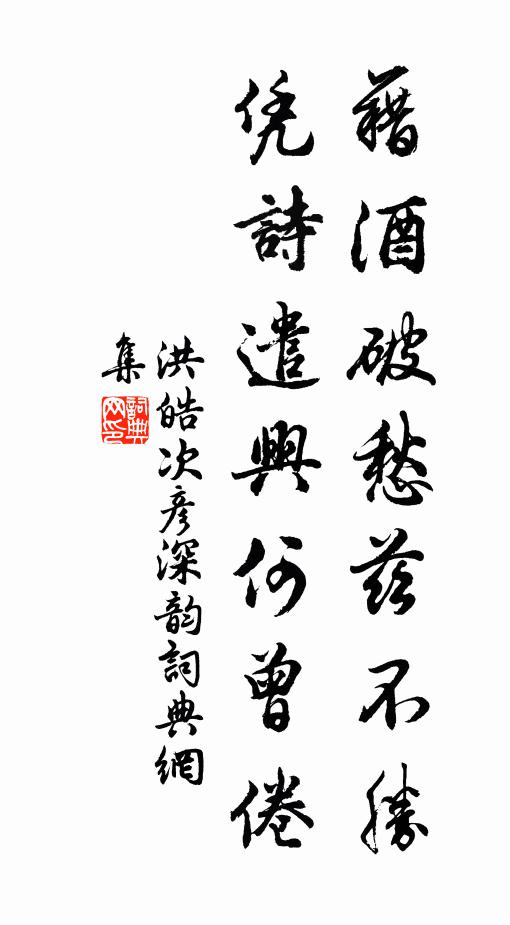 藉酒破愁茲不勝
凭詩遣興何曾倦
洪皓次彥深韵詞典網
集
詞典網印